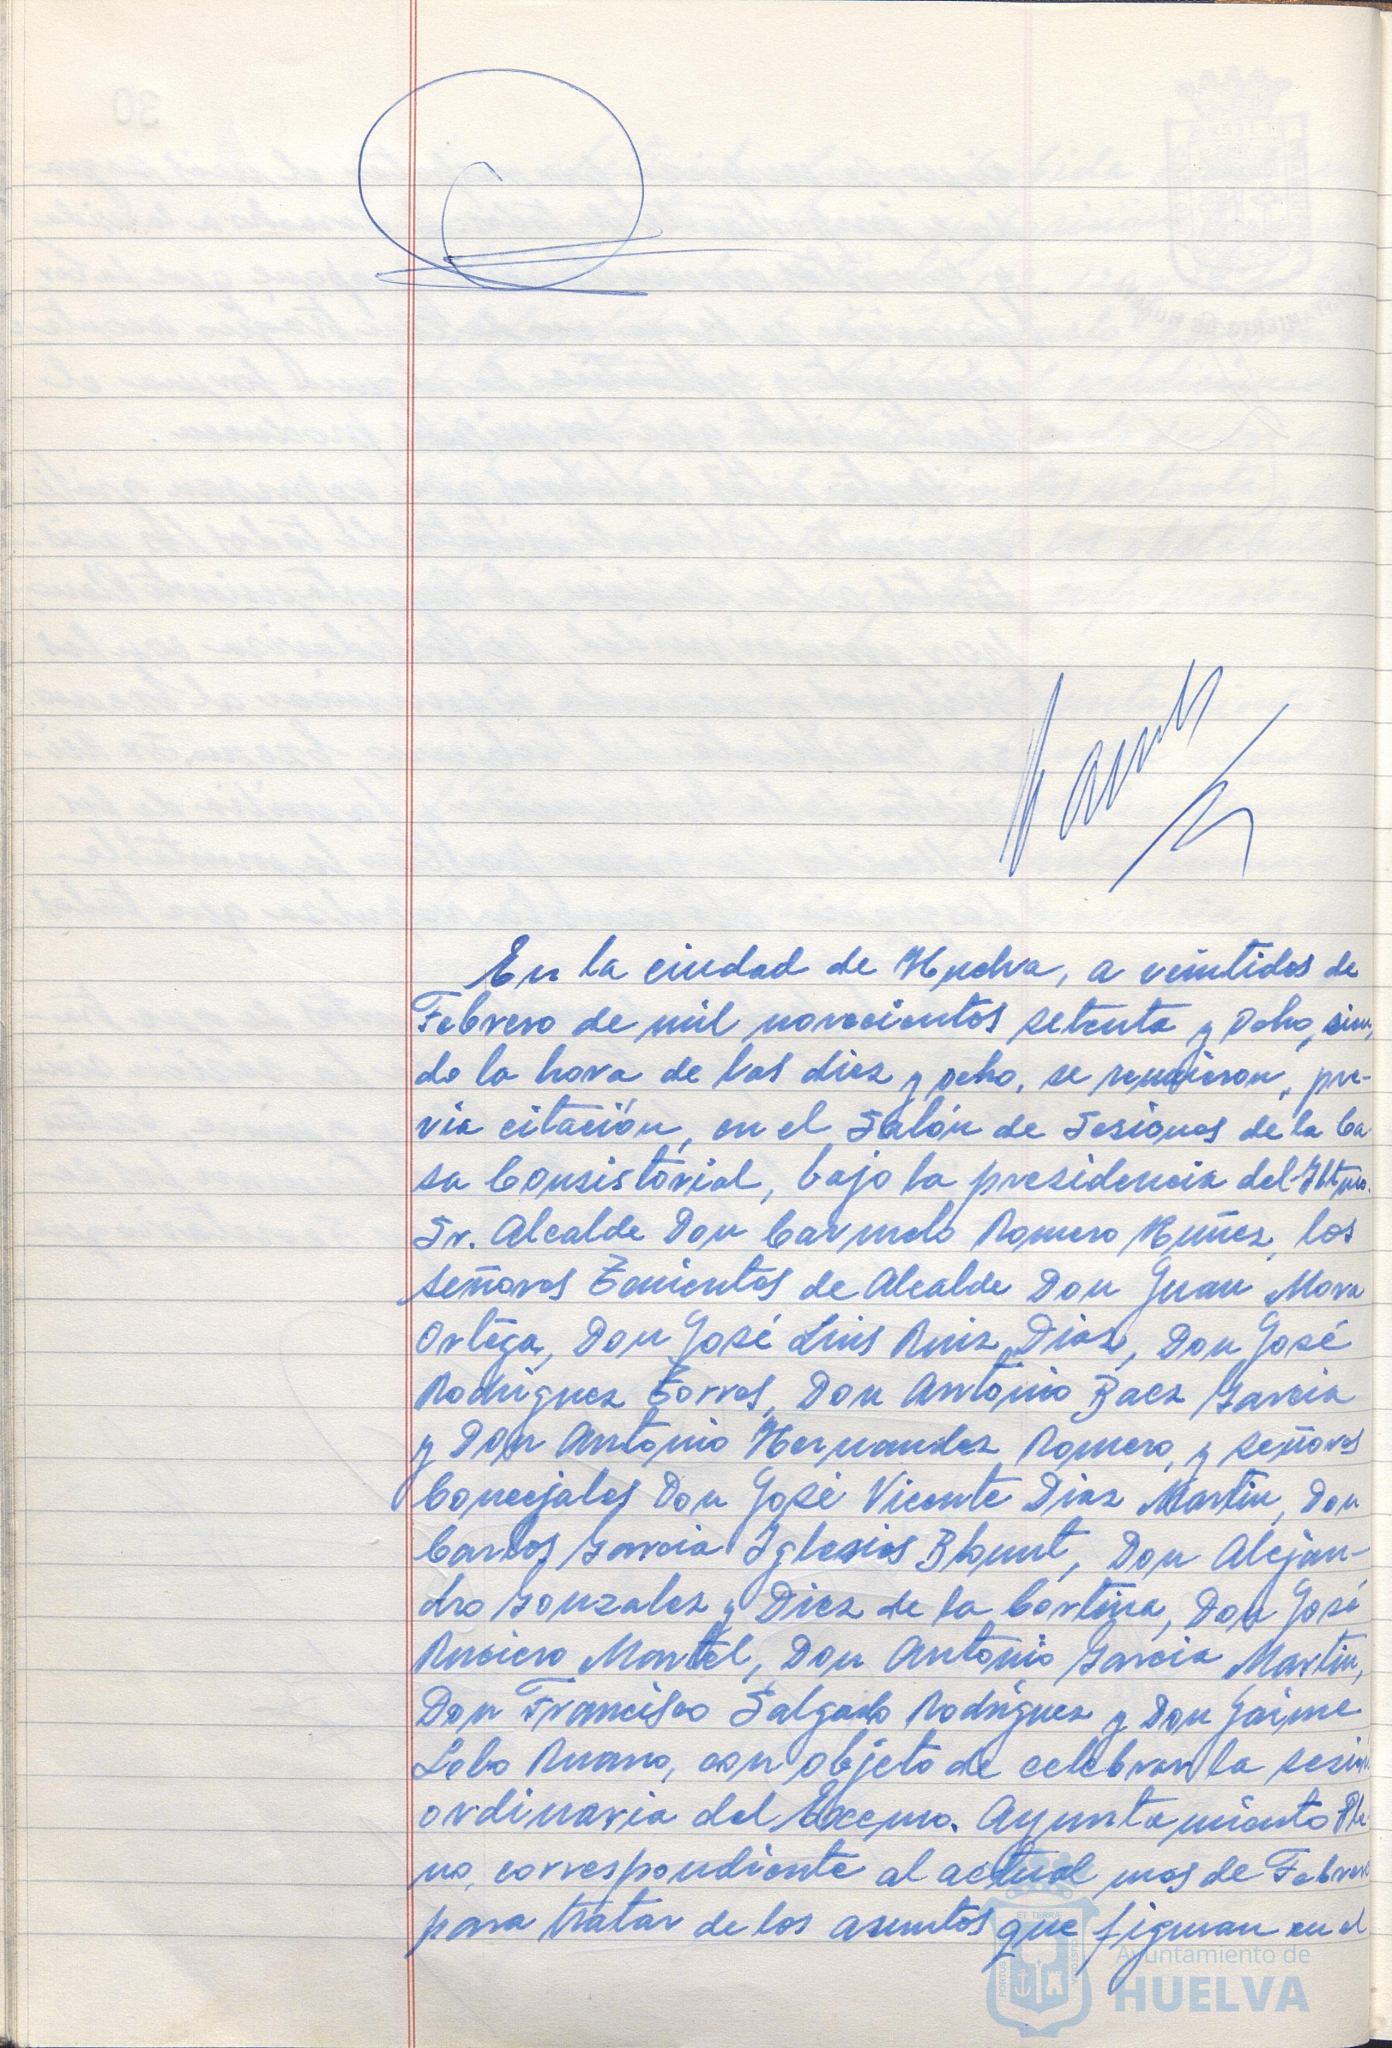 En la ciudad de Huelva, a veintidos de
Febrero de mil novecientos setenta y ocho, sien,
do la hora de las diez y ocho, se reunieron, pre-
via citación, en el Salón de Sesiones de la Ca-
sa Consistorial, bajo la presidencia del Iltmo.
Sr. Alcalde Don Carmelo Romero Núñez, los
señores Tenientes de Alcalde Don Juan Mora
Ortega, Don José Luis Ruiz Diaz, Don José
Rodriguez Torres, Don Antonio Baez Garcia
y Don Antonio Hernandez Romero, y señores
Concejales Don José Vicente Diaz Martin, Don
Carlos Garcia Iglesias Blount, Don Alejan-
dro Gonzalez y Diez de la Cortina, Don José
Ruciero Martel, Don Antonio Garcia Martin,
Don Francisco Salgado Rodriguez y Don Jaime
Lobo Ruano, con objeto de celebrar la sesión
ordinaria del Excmo. Ayuntamiento Ple-
no, correspondiente al actual mes de Febrero
para tratar de los asuntos que figuran en el
ET TERRÆ
PORTUS
CUSTODIA
Ayuntamiento de
HUELVA